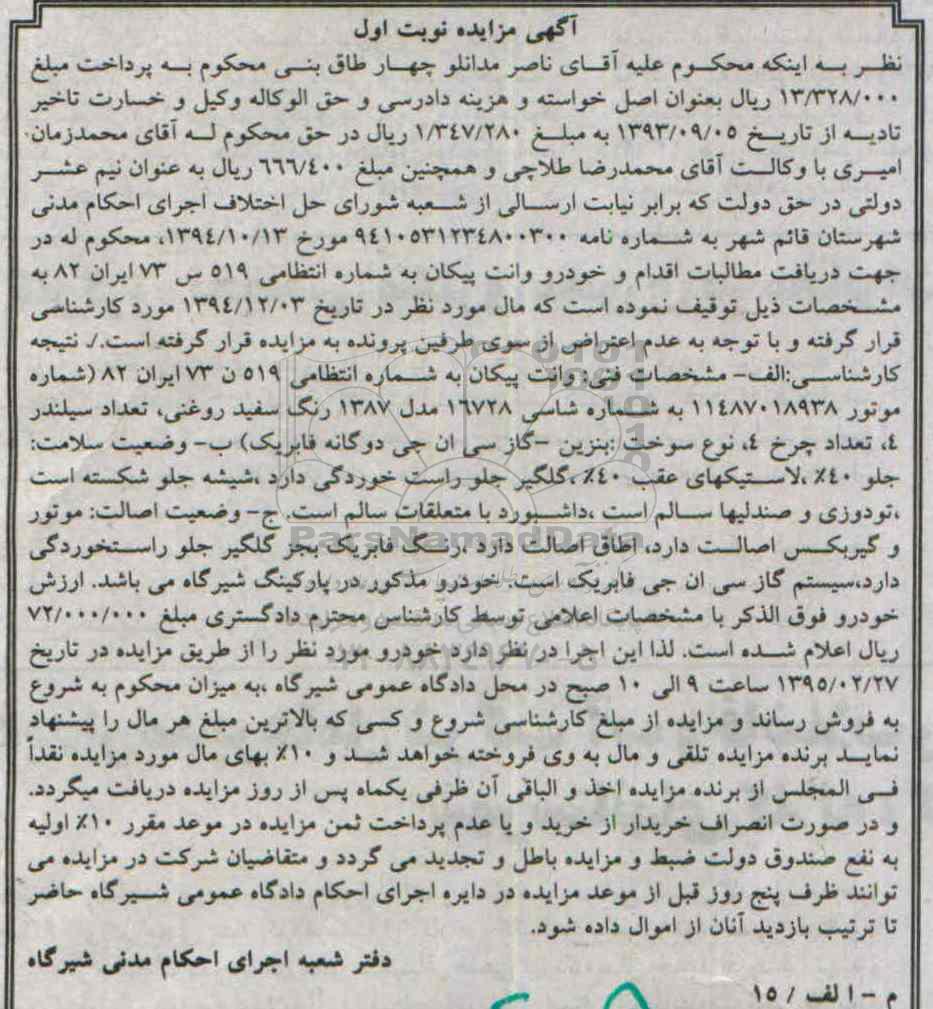 آگهی مزایده نوبت اول
نظر به اینکه محکوم علیه آقای ناصر مدانلو چهار طاق بنی محکوم به پرداخت مبلغ
۱۳/۳۲۸/۰۰۰ ریال بعنوان اصل خواسته و هزینه دادرسی و حق الوکاله وکیل و خسارت تاخیر
تادیه از تاریخ ۱۳۹۳/۰۹/۰۵ به مبلغ ۱/۳۴۷/۲۸۰ ریال در حق محکوم له آقای محمدزمان
امیری با وکالت آقای محمدرضا طلاچی و همچنین مبلغ ۶۶۶/۴۰۰ ریال به عنوان نیم عشر
دولتی در حق دولت که برابر نیابت ارسالی از شعبه شورای حل اختلاف اجرای احکام مدنی
شهرستان قائم شهر به شماره نامه ۹۴۱۰۵۳۱۲۳۴۸۰۰۳۰۰ مورخ ۱۳۹٤/۱۰/۱۳، محکوم له در
جهت دریافت مطالبات اقدام و خودرو وانت پیکان به شماره انتظامی ۵۱۹ س ۷۳ ایران ۸۲ به
مشخصات ذیل توقیف نموده است که مال مورد نظر در تاریخ ۱۳۹٤/۱۲/۰۳ مورد کارشناسی
قرار گرفته و با توجه به عدم اعتراض از سوی طرفین پرونده به مزایده قرار گرفته است./. نتیجه
کارشناسی:الف- مشخصات فنی: وانت پیکان به شماره انتظامی ۵۱۹ ن ۷۳ ایران ۸۲ (شماره
موتور ۱۱٤۸۷۰۱۸۹۳۸ به شماره شاسی ۱۶۷۲۸ مدل ۱۳۸۷ رنگ سفید روغنی، تعداد سیلندر
٤، تعداد چرخ ٤، نوع سوخت :بنزین -گاز سی ان جی دوگانه فابریک) ب- وضعیت سلامت:
جلو ٤۰٪ ،لاستیکهای عقب ٤۰٪ ،گلگیر جلو راست خوردگی دارد ،شیشه جلو شکسته است
،تودوزی و صندلیها سالم است ،داشبورد با متعلقات سالم است. ج- وضعیت اصالت: موتور
و گیربکس اصالت دارد، اطاق اصالت دارد ،رنگ فابریک بجز گلگیر جلو راستخوردگی
دارد،سیستم گاز سی ان جی فابریک است. خودرو مذکور در پارکینگ شیرگاه می باشد. ارزش
خودرو فوق الذکر با مشخصات اعلامی توسط کارشناس محترم دادگستری مبلغ ۷۲/۰۰۰/۰۰۰
ریال اعلام شده است. لذا این اجرا در نظر دارد خودرو مورد نظر را از طریق مزایده در تاریخ
۱۳۹۵/۰۲/۲۷ ساعت ۹ الی ۱۰ صبح در محل دادگاه عمومی شیرگاه ،به میزان محکوم به شروع
به فروش رساند و مزایده از مبلغ کارشناسی شروع و کسی که بالاترین مبلغ هر مال را پیشنهاد
نماید برنده مزایده تلقی و مال به وی فروخته خواهد شد و ۱۰٪ بهای مال مورد مزایده نقداً
فی المجلس از برنده مزایده اخذ و الباقی آن ظرفی یکماه پس از روز مزایده دریافت میگردد.
و در صورت انصراف خریدار از خرید و یا عدم پرداخت ثمن مزایده در موعد مقرر ۱۰٪ اولیه
به نفع صندوق دولت ضبط و مزایده باطل و تجدید می گردد و متقاضیان شرکت در مزایده می
توانند ظرف پنج روز قبل از موعد مزایده در دایره اجرای احکام دادگاه عمومی شیرگاه حاضر
تا ترتیب بازدید آنان از اموال داده شود.
دفتر شعبه اجرای احکام مدنی شیرگاه
م - الف / ۱۵
ParsNamadData